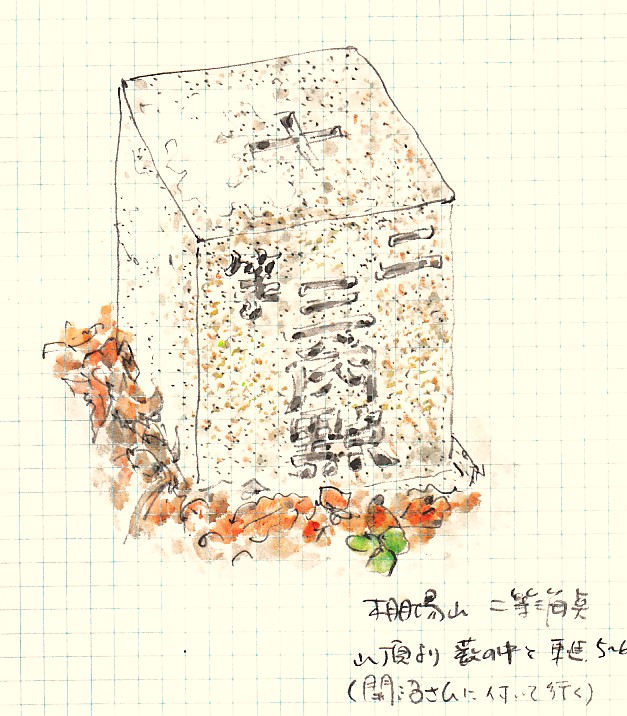 二等
三角點
棚場山 二等三角点
山頂より 藪の中を 東進 5~6
(さんに付いて行く)